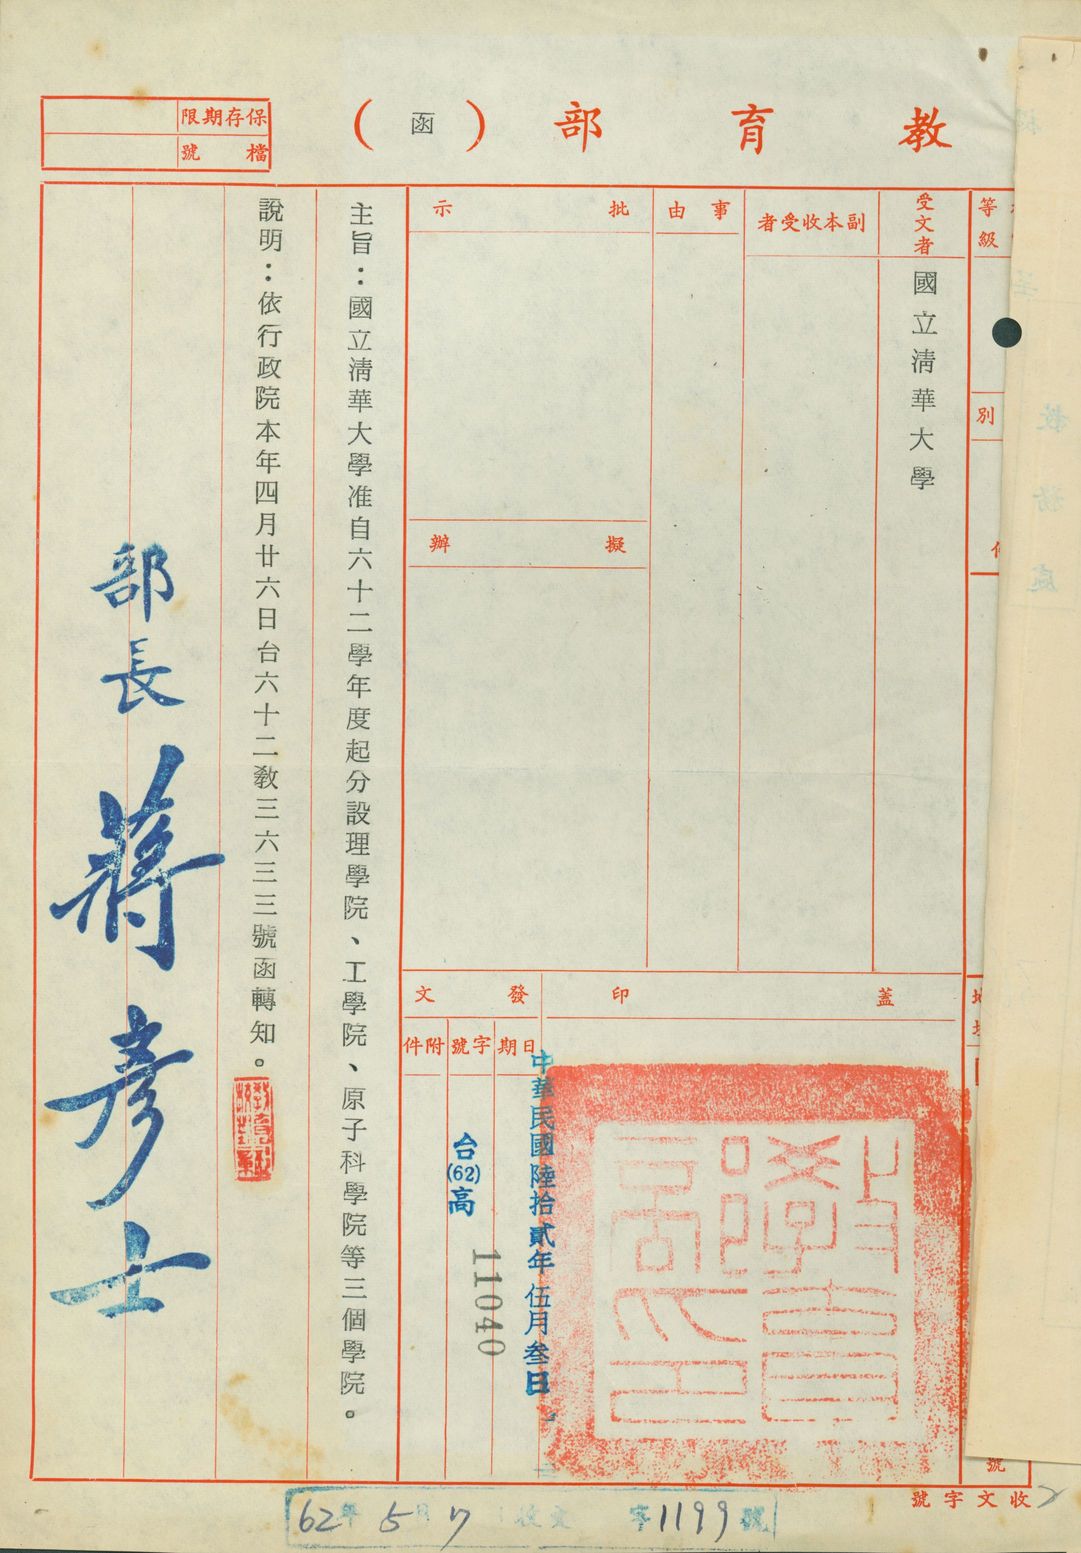 教育部（函）
保存期限
檔號
等級
別
受文者
國立清華大學
副本收受者
事由
批示
擬辦
蓋印
發文
日期
字號
附件
中華民國陸拾貳年伍月叁日
台(62)高
11040
教育部印
主旨：國立清華大學准自六十二學年度起分設理學院、工學院、原子科學院等三個學院。
說明：依行政院本年四月廿六日台六十二教三六三三號函轉知。
部長 蔣彥士
號
收文字號
62年5月7 收文 字1199號
教務處